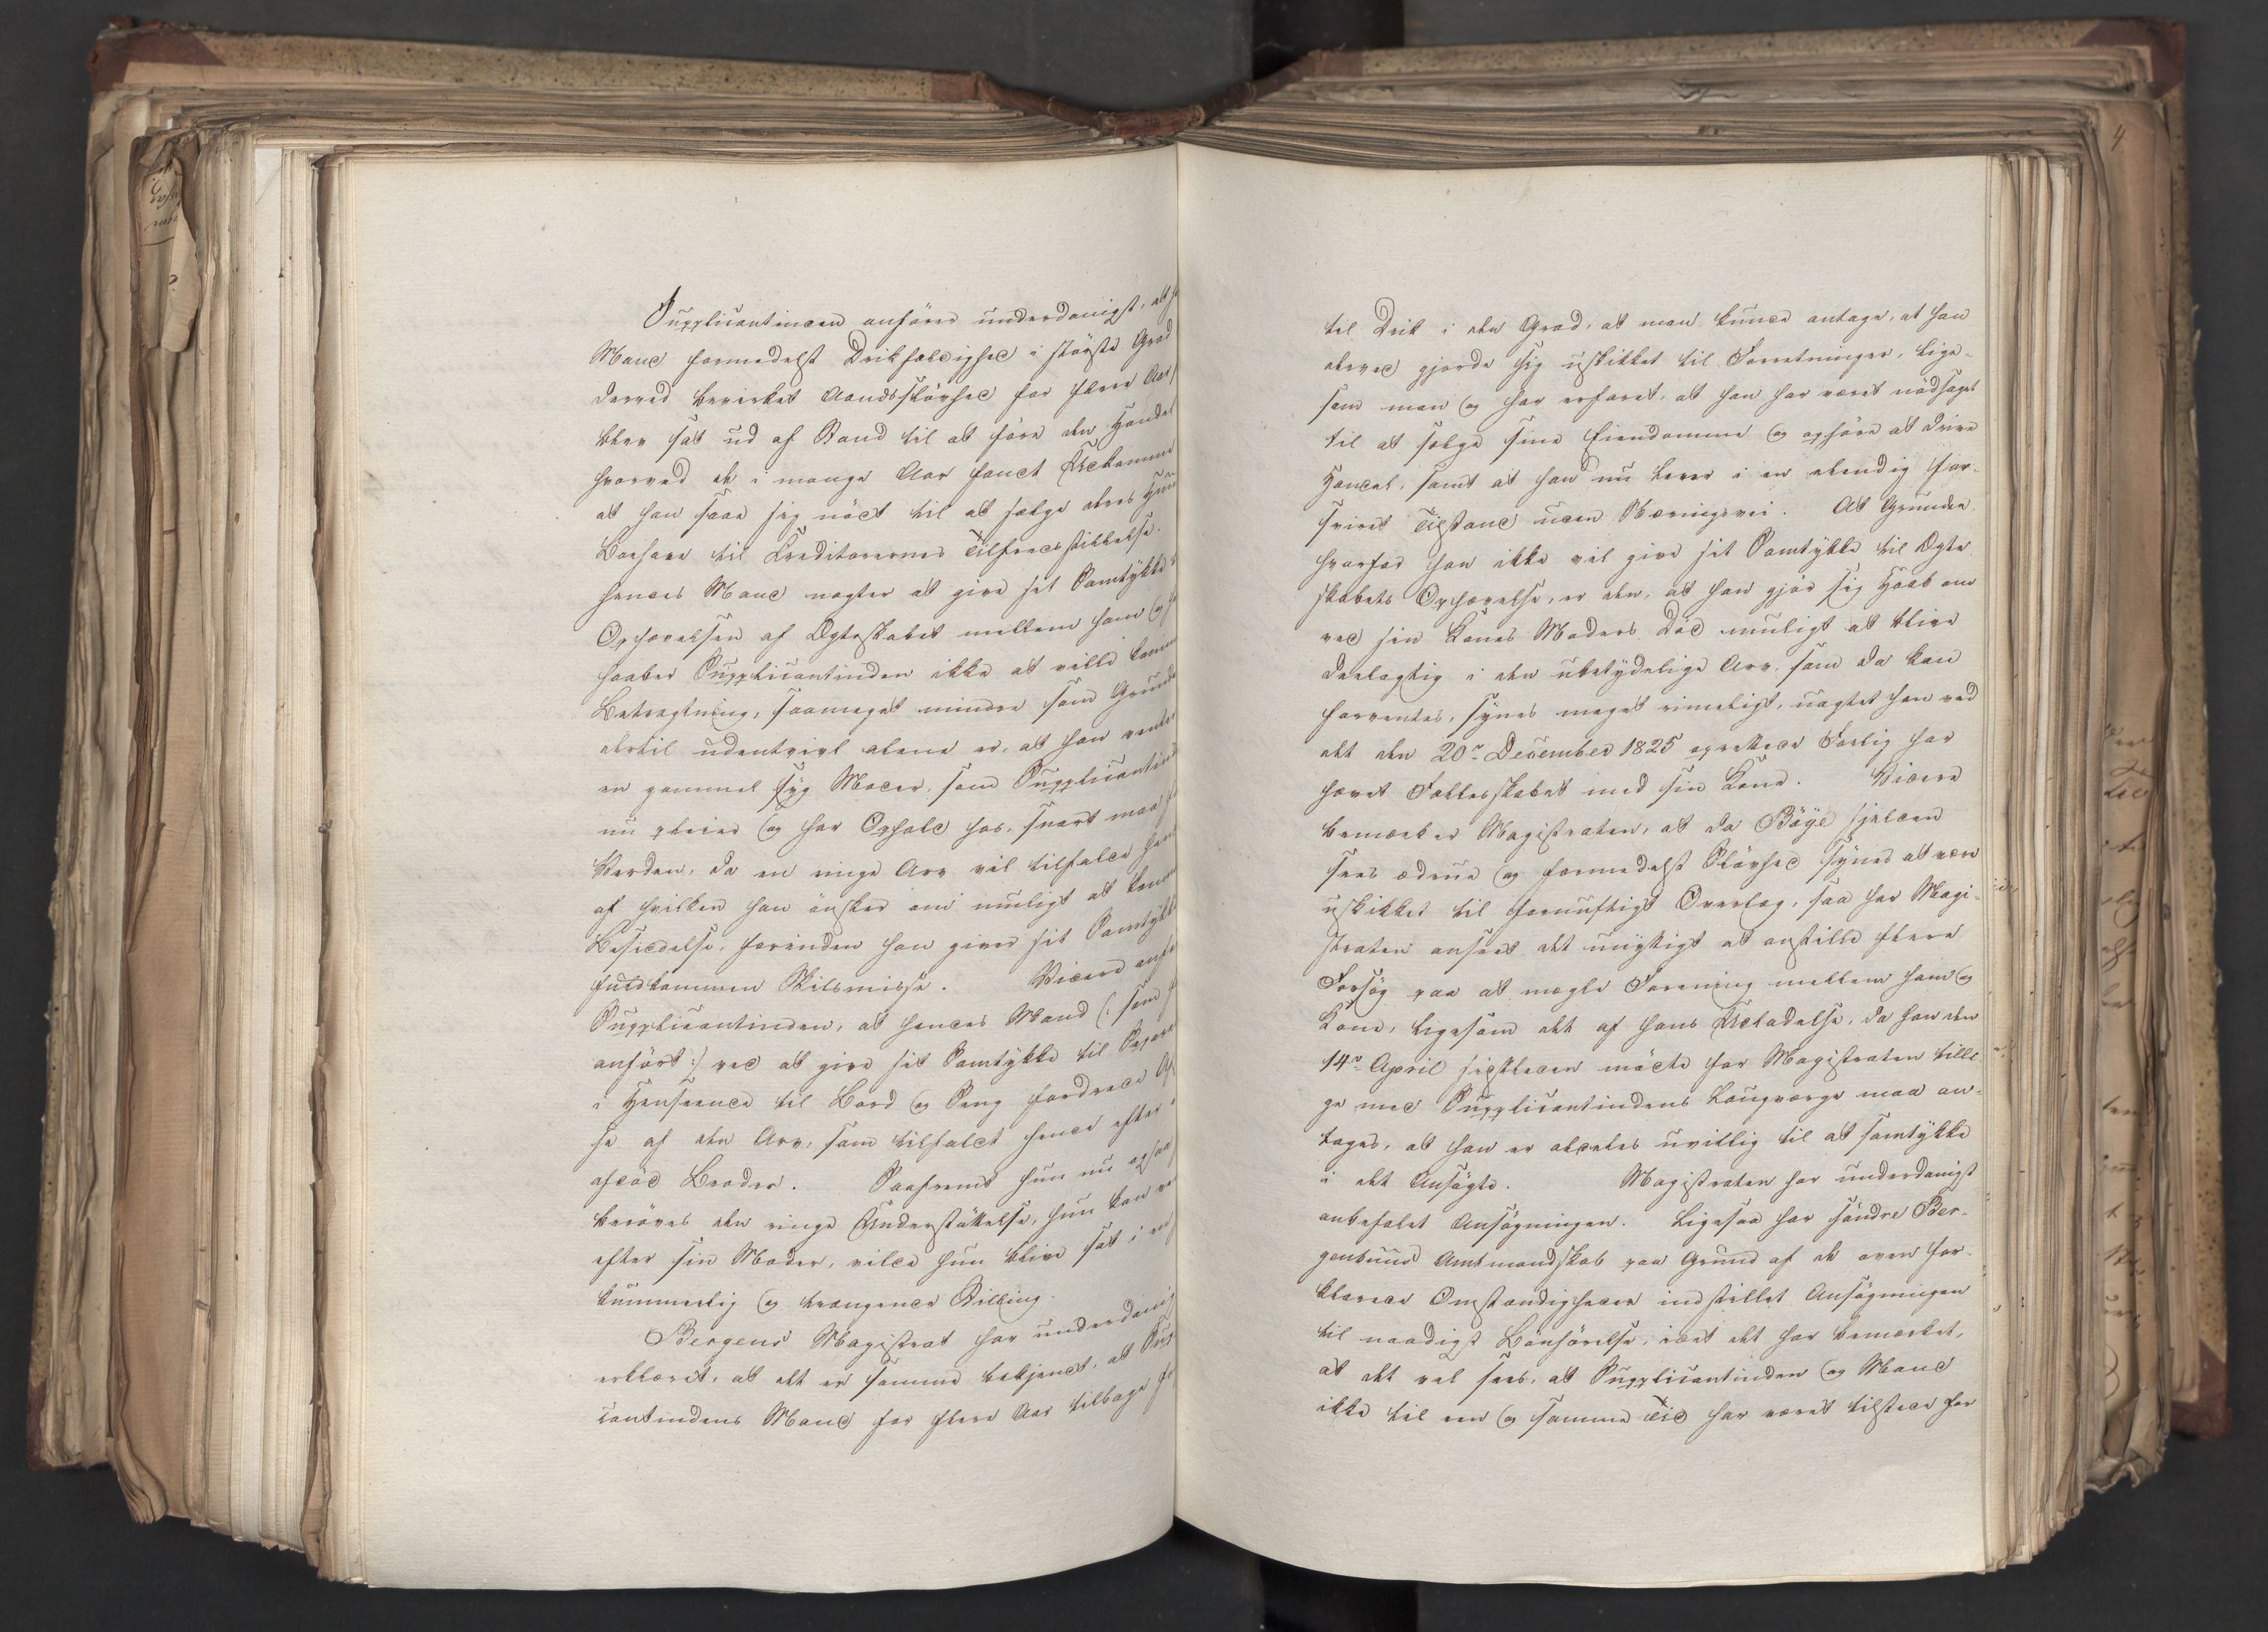 Supplicantinden anfører underdanigst, at h
Mand formedelst Drikfældighed i største Grad
derved bevirket Aandssløvhed for flere Aar s
blev sat ud af Stand til at føre den Handel
hvorved de i mange Aar fandt Udkomme
at han saae sig nødt til at sælge deres Huus
Boehave til Creditorernes Tilfredsstillelse.
hendes Mand nægter at give sit Samtykke t
Ophævelsen af Ægteskabet mellem ham og h
haaber Supplicantinden ikke at ville komme
Betragtning, saameget mindre som Grunde
dertil udentvivl alene er, at han venter
en gammel syg Moder, som Supplicantind
nu pleier og har Ophold hos, snart maa f
Verden, da en ringe Arv vil tilfalde hen
af hvilken han ønsker om muligt at komme
Besiddelse, forinden han giver sit Samtykke
fuldkommen Skilsmisse. Videre anfø
Supplicantinden, at hendes Mand (: som f
anført :) ved at give sit Samtykke til Separa
i Henseende til Bord og Seng fordrede Af
se af den Arv, som tilfaldt hende efter e
afdød Broder. Saafremt hun nu ogsaa
berøves den ringe Understøttelse, hun kan ve
efter sin Moder, vilde hun blive sat i en
kummerlig og trængende Stilling.
Bergens Magistrat har underdanig
erklæret, at det er samme bekjendt, at Sup
cantindens Mand for flere Aar tilbage f
4
til Drik i den Grad, at man kunde antage, at han
derved gjorde sig uskikket til Forretninger, lige-
som man og har erfaret, at han har været nødsaget
til at sælge sine Eiendomme og ophøre at drive
Handel, samt at han nu lever i en elendig for-
sviret Tilstand uden Næringsvei. At Grunden
hvorfor han ikke vil give sit Samtykke til Ægte
skabets Ophævelse, er den, at han gjør sig Haab om
ved sin Kones Moders Død muligt at blive
deelagtig i den ubetydelige Arv, som da kan
forventes, synes meget rimeligt, uagtet han ved
det den 20de December 1825 oprettede Forlig har
hævet Fællesskabet med sin Kone. Videre
bemærker Magistraten, at da Böye sjelden
sees ædrue og formedelst Sløvhed synes at være
uskikket til fornuftigt Overlæg, saa har Magi-
straten anseet det unyttigt at anstille flere
Forsøg paa at mægle Forening mellem ham og
Kone, ligesom det af hans Udeladelse, da han den
14de April sidstleden mødte for Magistraten tilli
ge med Supplicantindens Laugværge maa an-
tages, at han er aldeles uvillig til at samtykke
i det Ansøgte. Magistraten har underdanigst
anbefalet Ansøgningen. Ligesaa har søndre Ber-
genhuus Amtmandskab paa Grund af de oven for-
klarede Omstændigheder indstillet Ansøgningen
til naadigst Bønhørelse, idet det har bemærket,
at det vel sees, at Supplicantinden og Mand
ikke til een og samme Tid har været tilstede for